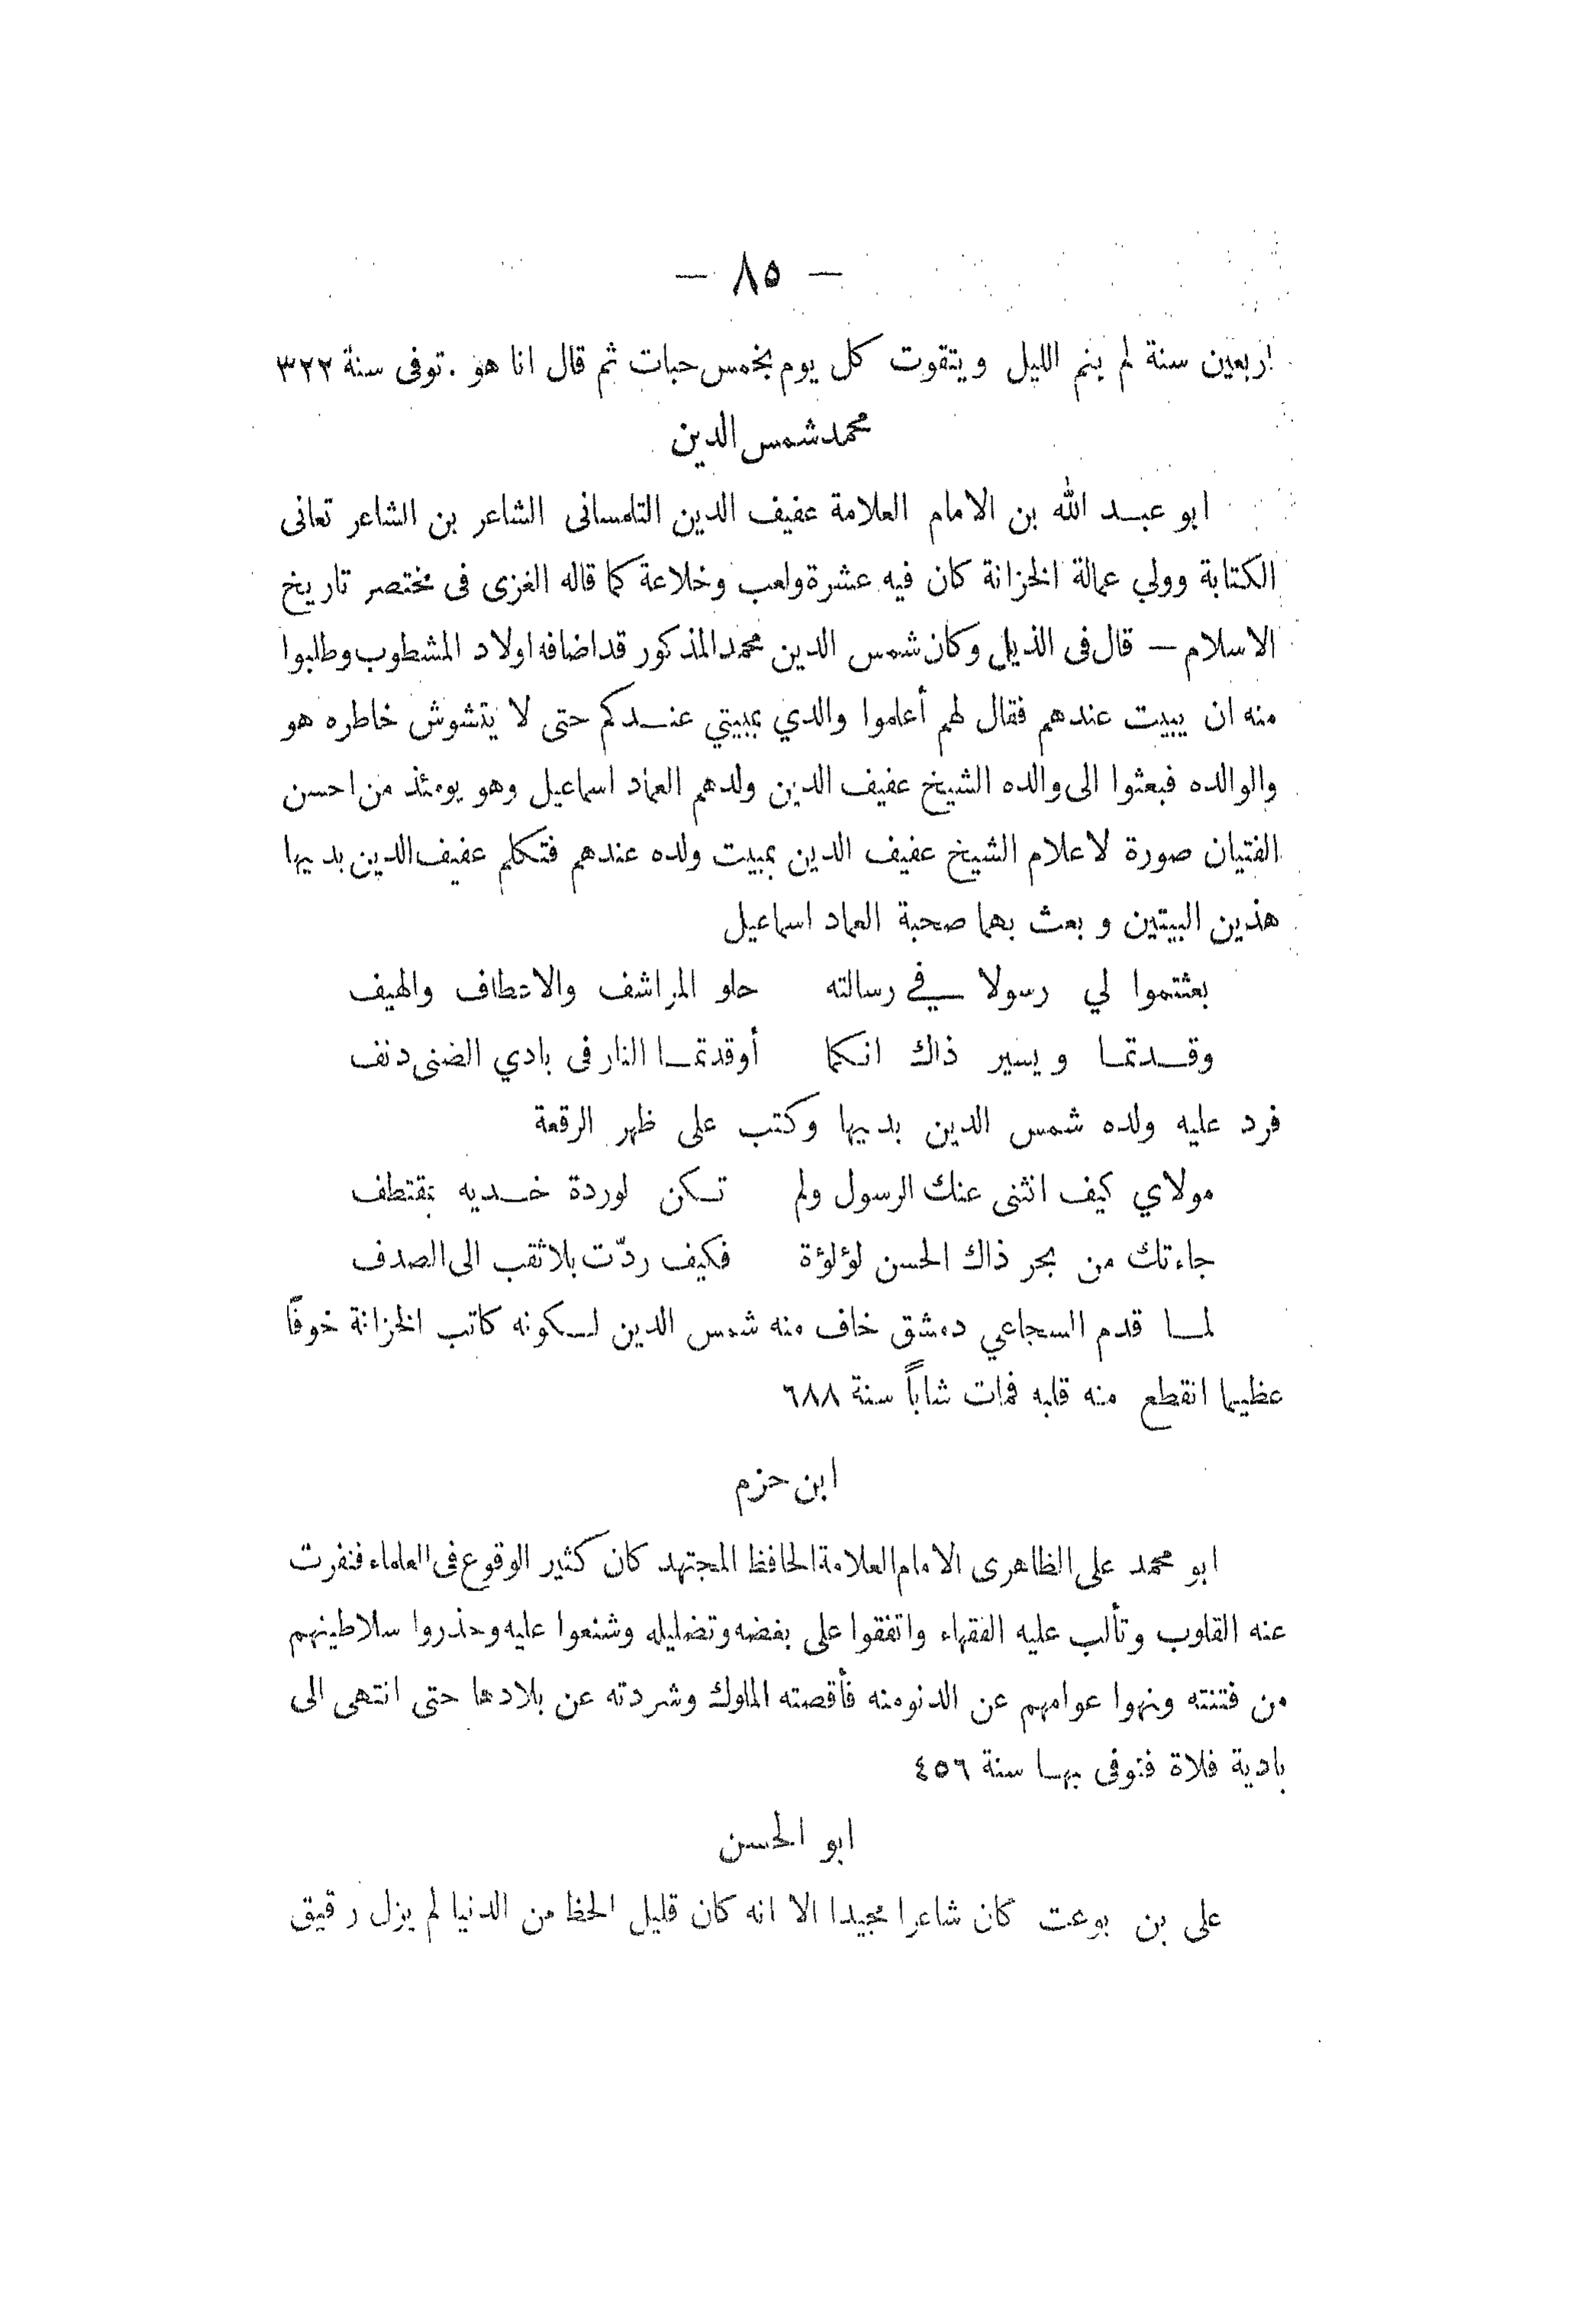 — ٨٥ —
اربعين سنة لم ينم الليل ويتقوت كل يوم بخمس حبات ثم قال انا هو . توفى سنة ٣٢٢
محمد شمس الدين
ابو عبد الله بن الامام العلامة عفيف الدين التلمسانى الشاعر بن الشاعر تعانى
الكتابة وولي عمالة الخزانة كان فيه عشرة ولعب وخلاعة كما قاله الغزى فى مختصر تاريخ
الاسلام — قال فى الذيل وكان شمس الدين محمد المذكور قد اضافه اولاد المشطوب وطلبوا
منه ان يبيت عندهم فقال لهم أعلموا والدي بمبيتي عندكم حتى لا يتشوش خاطره هو
والوالده فبعثوا الى والده الشيخ عفيف الدين ولدهم العماد اسماعيل وهو يومئذ من احسن
الفتيان صورة لاعلام الشيخ عفيف الدين بمبيت ولده عندهم فتكلم عفيف الدين بديها
هذين البيتين وبعث بهما صحبة العماد اسماعيل
بعثتموا لي رسولا في رسالته حلو المراشف والاعطاف والهيف
وقدتما ويسير ذاك انكما أوقدتما النار فى بادي الضنى دنف
فرد عليه ولده شمس الدين بديها وكتب على ظهر الرقعة
مولاي كيف انثنى عنك الرسول ولم تكن لوردة خديه بمقتطف
جاءتك من بحر ذاك الحسن لؤلؤة فكيف ردّت بلا ثقب الى الصدف
لما قدم السجاعي دمشق خاف منه شمس الدين لكونه كاتب الخزانة خوفًا
عظيما انقطع منه قلبه فمات شاباً سنة ٦٨٨
ابن حزم
ابو محمد على الظاهرى الامام العلامة الحافظ المجتهد كان كثير الوقوع فى العلماء فنفرت
عنه القلوب وتألب عليه الفقهاء واتفقوا على بغضه وتضليله وشنعوا عليه وحذروا سلاطينهم
من فتنته ونهوا عوامهم عن الدنو منه فأقصته الملوك وشردته عن بلادها حتى انتهى الى
بادية فلاة فتوفى بها سنة ٤٥٦
ابو الحسن
على بن بوعت كان شاعرا مجيدا الا انه كان قليل الحظ من الدنيا لم يزل رقيق